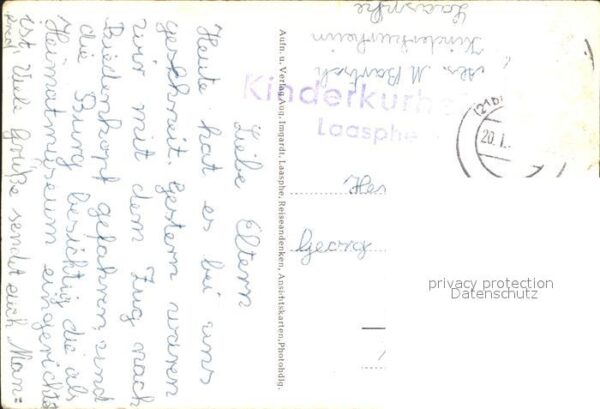 Liebe Eltern
Heute hat es bei uns
geschneit. Gestern waren
wir mit dem Zug nach
Biedenkopf gefahren, und
die Burg besichtig die als
Heimatmuseum eingerichte
ist. Viele Grüße sendet euch Man=
fred
Aufn. u. Verlag Aug. Imgardt, Laasphe, Reiseandenken, Ansichtskarten, Photohdlg.
Abs. M. Bartsch
Kinderkurheim
Laasphe
Kinderkurhe
Laasphe
20.1.
Georg
privacy protection
Datenschutz